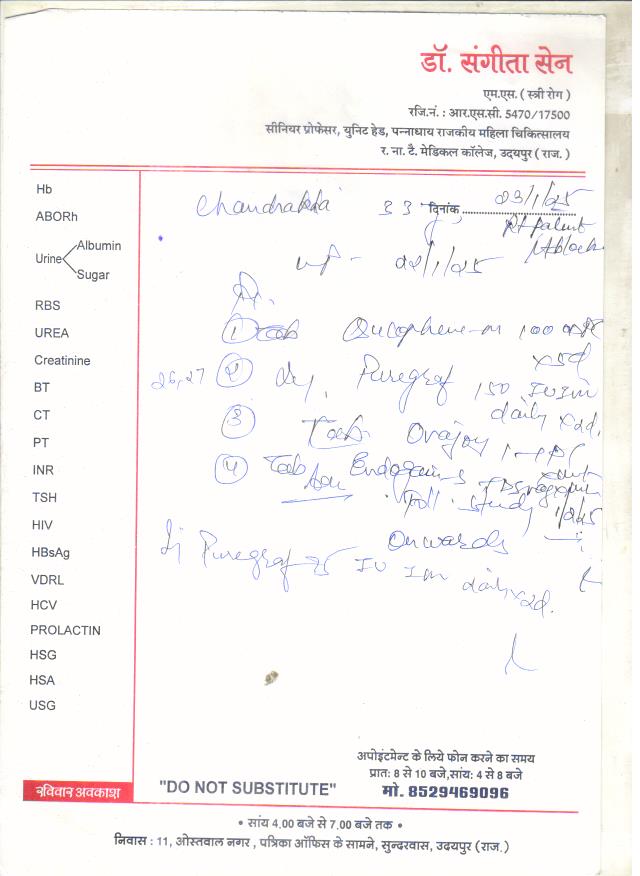 डॉ. संगीता सेन
एम.एस. ( स्त्री रोग )
रजि.नं. : आर.एस.सी. 5470/17500
सीनियर प्रोफेसर, युनिट हेड, पन्नाधाय राजकीय महिला चिकित्सालय
र. ना. टै. मेडिकल कॉलेज, उदयपुर ( राज. )
Hb
ABORh
Urine Albumin
Sugar
RBS
UREA
Creatinine
BT
CT
PT
INR
TSH
HIV
HBsAg
VDRL
HCV
PROLACTIN
HSG
HSA
USG
33 दिनांक 23/1/25
Rt patent
Lt block
22/1/25
① Tab 100
x5d
26,27 ② Puregraf 150 IU Im
daily x2d.
③ Tab. Ovajoy
④ Tab
Foll. study 1/2/25
Onwards
Puregraf 75 IU Im daily x2d.
अपोइंटमेन्ट के लिये फोन करने का समय
प्रात: 8 से 10 बजे,सांय: 4 से 8 बजे
मो. 8529469096
रविवार अवकाश
"DO NOT SUBSTITUTE"
• सांय 4,00 बजे से 7,00 बजे तक •
निवास : 11, ओस्तवाल नगर , पत्रिका ऑफिस के सामने, सुन्दरवास, उदयपुर (राज.)